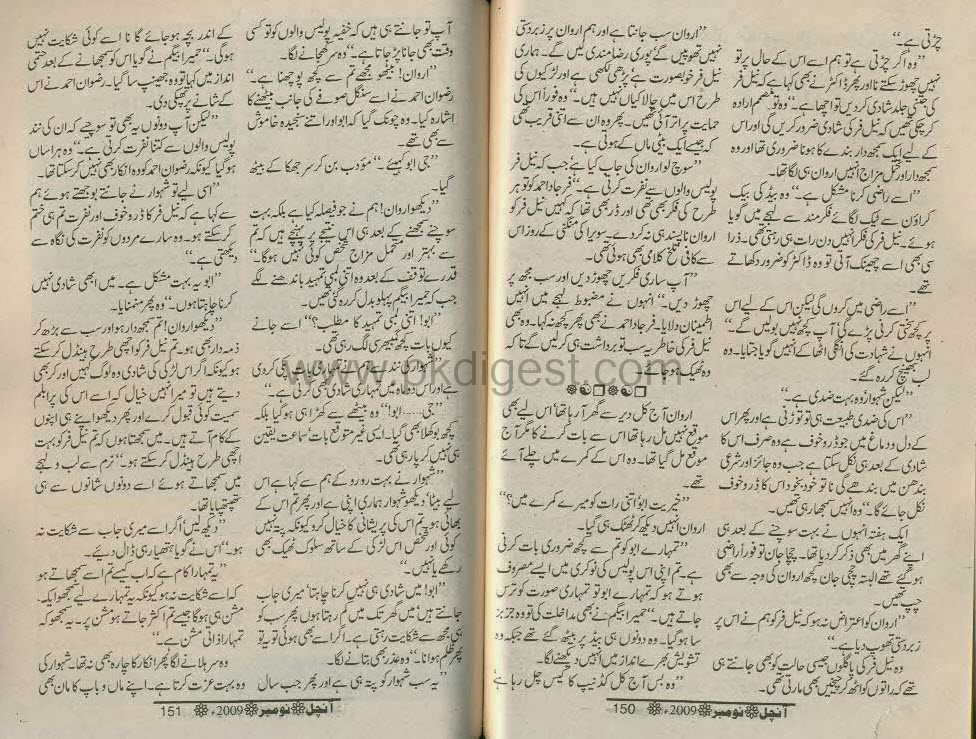 چڑتی ہے۔‘‘
’’وہ اگر چڑتی ہے تو ہم اسے اس کے حال پر تو
نہیں چھوڑ سکتے نا اور پھر ڈاکٹر نے بھی کہا ہے کہ نیل فر
کی جتنی جلد شادی کر دیں تو اچھا ہے۔‘‘ وہ تو مصمم ارادہ
کر چکی تھیں کہ نیل فر کی شادی ضرور کریں گی اور اس
کے لیے ایک سمجھدار بندے کا ہونا ضروری تھا اور وہ
سمجھدار اور متحمل مزاج انہیں اروان ہی لگا تھا۔
’’اسے راضی کرنا مشکل ہے۔‘‘ وہ بیڈ کی بیک
کراؤن سے ٹیک لگائے فکر مند سے لہجے میں گویا
ہوئے۔ نیل فر کی فکر انہیں دن رات ہی رہتی تھی۔ ذرا
سی بھی اسے چھینک آتی تو وہ ڈاکٹر کو ضرور دکھاتے
تھے۔
’’اسے راضی میں کروں گی لیکن اس کے لیے اس
پر کچھ سختی کرنی پڑے گی آپ کچھ نہیں بولیں گے۔‘‘
انہوں نے شہادت کی انگلی اٹھا کے انہیں گویا جتایا۔ وہ
لب بھینچ کر رہ گئے۔
’’لیکن شہوار وہ بہت ضدی ہے۔‘‘
’’اس کی ضدی طبیعت ہی تو توڑنی ہے اور پھر اس
کے دل و دماغ میں جو ڈر و خوف ہے وہ صرف اس کا
شادی کے بعد ہی نکل سکتا ہے جب وہ جائز اور شرعی
بندھن میں بندھے گی نا تو خود بخود اس کا ڈر و خوف
نکل جائے گا۔‘‘ وہ انہیں سمجھا رہی تھیں۔
ایک ہفتہ انہوں نے بہت سوچنے کے بعد ہی
اپنے گھر میں بھی ذکر کر دیا تھا۔ چچا جان تو فوراً راضی
ہو گئے تھے البتہ چچی جان کچھ اروان کی وجہ سے بھی
چپ تھیں۔
’’اروان کو اعتراض نہ ہو کہ نیل فر کو ہم نے اس پر
زبردستی تھوپ دیا ہے۔‘‘
وہ نیل فر کی پاگلوں جیسی حالت کو بھی جانتے ہی
تھے کہ راتوں کو اٹھ کر چیخیں بھی مارتی تھی۔
’’اروان سب جانتا ہے اور ہم اروان پر زبردستی
نہیں تھوپیں گے پوری رضا مندی لیں گے۔ ہماری
نیل فر خوبصورت ہے پڑھی لکھی ہے اور لڑکیوں کی
طرح اس میں چالاکیاں نہیں ہیں۔‘‘ وہ فوراً اس کی
حمایت پر اتر آئی تھیں۔ پھر وہ ان سے اتنی قریب تھی
کہ جیسے ایک بیٹی ماں کے ہوتی ہے۔
’’سوچ لو اروان کی جاب کیا ہے جب کہ نیل فر
پولیس والوں سے نفرت کرتی ہے۔‘‘ فرجاد احمد کو تو ہر
طرح کی فکر بھی تھی اور ڈر بھی تھا کہ کہیں نیل فر کو
اروان ناپسند ہی نہ کر دے۔ سویرا کی منگنی کے روز اس
سے کافی تلخ کلامی بھی ہوئی تھی۔
’’آپ ساری فکریں چھوڑ دیں اور سب مجھ پر
چھوڑ دیں۔‘‘ انہوں نے مضبوط لہجے میں انہیں
اطمینان دلایا۔ فرجاد احمد نے بھی پھر کچھ نہ کہا۔ وہ بھی
نیل فر کی خاطر یہ سب تو برداشت ہی کر لیں گے تاکہ
وہ ٹھیک ہو جائے۔
اروان آج کل دیر سے گھر آ رہا تھا اس لیے بھی
موقع نہیں مل رہا تھا اس سے بات کرنے کا مگر آج
موقع مل گیا تھا۔ وہ اس کے کمرے میں چلے آئے
تھے۔
’’خیریت ابو! اتنی رات کو میرے کمرے میں؟‘‘
اروان انہیں دیکھ کر ٹھٹک ہی گیا۔
’’تمہارے ابو کو تم سے کچھ ضروری بات کرنی
ہے۔ تم اپنی اس پولیس کی نوکری میں ایسے مصروف
ہوتے ہو کہ تمہارے ابو تو تمہاری صورت کو ترس
جاتے ہیں۔‘‘ حمیرا بیگم نے بھی مداخلت کی تو وہ جز بز
سا ہو گیا۔ وہ دونوں ہی بیڈ پر بیٹھ گئے تھے جبکہ وہ
تشویش بھرے انداز میں انہیں دیکھنے لگا۔
’’وہ بس آج کل کڈنیپ کا کیس چل رہا ہے
آنچل نومبر 2009ء 150
آپ تو جانتے ہی ہیں کہ خفیہ پولیس والوں کو تو کسی
وقت بھی جانا پڑ جاتا ہے۔‘‘ وہ سر کھجانے لگا۔
’’اروان! بیٹھو مجھے تم سے کچھ پوچھنا ہے۔‘‘
رضوان احمد نے اسے سنگل صوفے کی جانب بیٹھنے کا
اشارہ کیا۔ وہ چونک گیا کہ ابو اور اتنے سنجیدہ خاموش
سے بھی تھے۔
’’جی ابو کہیے۔‘‘ مؤدب بن کر سر جھکا کے بیٹھ
گیا۔
’’دیکھو اروان! ہم نے جو فیصلہ کیا ہے بلکہ بہت
سوچنے سمجھنے کے بعد ہی اس نتیجے پر پہنچے ہیں کہ تم
سے بہتر اور متحمل مزاج شخص کوئی نہیں ہو گا۔‘‘
قدرے توقف کے بعد وہ اتنی لمبی تمہید باندھنے لگے
جب کہ حمیرا بیگم پہلو بدل کر رہ گئی تھیں۔
’’ابو! اتنی لمبی تمہید کا مطلب؟‘‘ اسے جانے
کیوں بات کچھ گمبھیر سی لگ رہی تھی۔
’’شہوار کی نند سے ہم نے تمہاری بات پکی کر دی
ہے اور اس دو ماہ میں تمہاری شادی بھی کرنی ہے۔‘‘
’’جی... ابو!‘‘ وہ بیٹھے سے کھڑا ہی ہو گیا بلکہ
کچھ بوکھلا بھی گیا۔ ایسی غیر متوقع بات‘ سماعت یقین
ہی نہیں کر پا رہی تھی۔
’’شہوار نے بہت رو رو کے ہم سے کہا ہے اس
لیے بیٹا‘ دیکھو شہوار ہماری اپنی ہے اور پھر تم اس کے
بھائی ہو یہ تم اس کی پریشانی کا خیال کرو کیونکہ پتہ نہیں
کوئی اور شخص اس لڑکی کے ساتھ سلوک ٹھیک بھی
رکھے یا نہیں۔‘‘
’’ابو! میں شادی ہی نہیں کرنا چاہتا‘ میری جاب
جانتے ہیں میں گھر تک میں کم رہتا ہوں پھر سب کو
ہی مجھ سے شکایت رہتی ہے۔ اگر اسے بھی ہوئی تو یہ تو
پھر ظلم ہوا نا۔‘‘ وہ عذر بھی بتانے لگا۔
’’یہ سب شہوار کو پتہ ہی ہے اور پھر جب سال
کے اندر بچہ ہو جائے گا نا اسے کوئی شکایت نہیں
ہو گی۔‘‘ حمیرا بیگم نے گویا اس کو سمجھانے کے بعد حتمی
انداز میں کہا تو وہ جھینپ سا گیا۔ رضوان احمد نے اس
کے شانے پر تھپکی دی۔
’’لیکن آپ دونوں یہ بھی تو سوچیے کہ ان کی نند
پولیس والوں سے کتنا نفرت کرتی ہے۔‘‘ وہ ہراساں
ہو گیا کیونکہ رضوان احمد کو وہ انکار بھی نہیں کر سکتا تھا۔
’’اسی لیے تو شہوار نے جانتے بوجھتے ہوئے ہم
سے کہا ہے کہ نیل فر کا ڈر و خوف اور نفرت تم ہی ختم
کر سکتے ہو۔ وہ سارے مردوں کو نفرت کی نگاہ سے
دیکھتی ہے۔‘‘
’’ابو یہ بہت مشکل ہے۔ میں ابھی شادی نہیں
کرنا چاہتا ہوں۔‘‘ وہ پھر منمنایا۔
’’دیکھو اروان! تم سمجھدار ہو اور سب سے بڑھ کر
ذمہ دار بھی ہو۔ تم نیل فر کو اچھی طرح ہینڈل کر سکتے
ہو کیونکہ اگر اس لڑکی کی شادی وہ لوگ کہیں اور بھی کر
دیتے ہیں تو میرا نہیں خیال کہ اسے اس کی پرابلم
سمیت کوئی قبول کرے اور پھر دیکھو اپنے ہی اپنوں
کے کام آتے ہیں۔ میں سمجھتا ہوں کہ تم نیل فر کو بہت
اچھی طرح ہینڈل کر سکتے ہو۔‘‘ نرم سے لب و لہجے
میں سمجھاتے ہوئے اسے دونوں شانوں سے ہی
تھپتھپایا تھا۔
’’دیکھ لیں! اگر اسے میری جاب سے شکایت نہ
ہو۔‘‘ اس نے گویا ہتھیار ہی ڈال دیے۔
’’یہ تمہارا کام ہے کہ اب کیسے تم اسے سمجھاتے ہو
کہ اسے شکایت نہ ہو کیونکہ یہ تمہارے لیے سمجھو ایک
مشن ہی ہو گا جیسے تم اکثر جاتے ہو مشن پر۔ یہ سمجھو کہ
تمہارا ذاتی مشن ہے۔‘‘
وہ سر ہلانے لگا پھر انکار کا چارہ بھی نہ تھا۔ شہوار کی
وہ بہت عزت کرتا ہے۔ اپنے ماں و باپ کا مان بھی
آنچل نومبر 2009ء 151
www.pkdigest.com